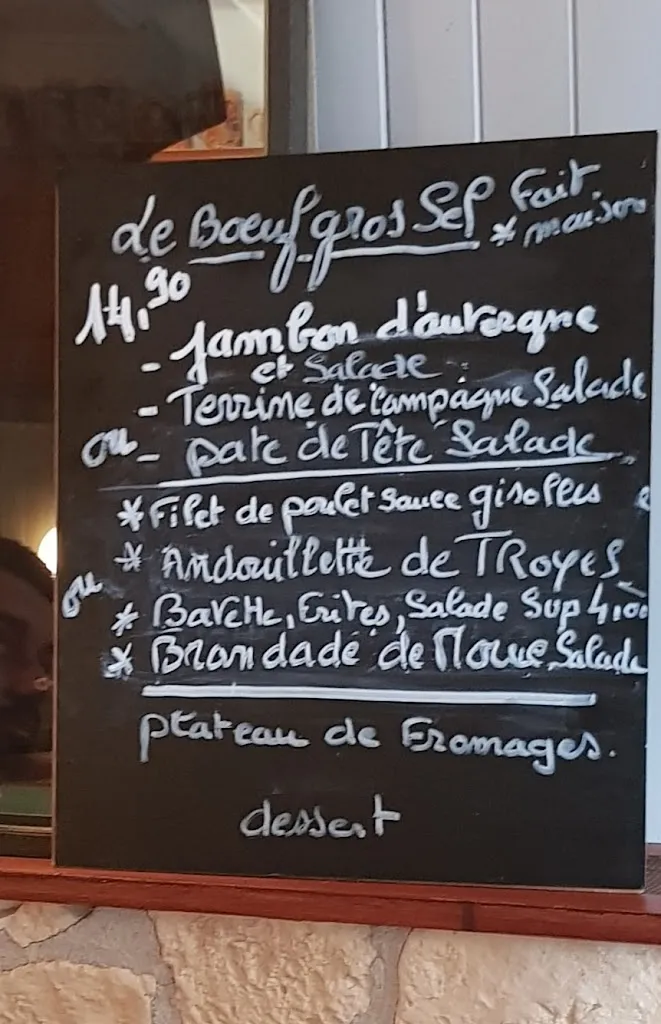 Le Bœuf gros Sel Fait
* maison
14,90
- Jambon d'auvergne
et Salade
- Terrine de Campagne Salade
ou - pate de Tête Salade
* Filet de poulet sauce girolles
* Andouillette de TROYES
ou
* Bavette, Frites, Salade Sup 4,00
* Brandade de Morue Salade
plateau de Fromages.
dessert